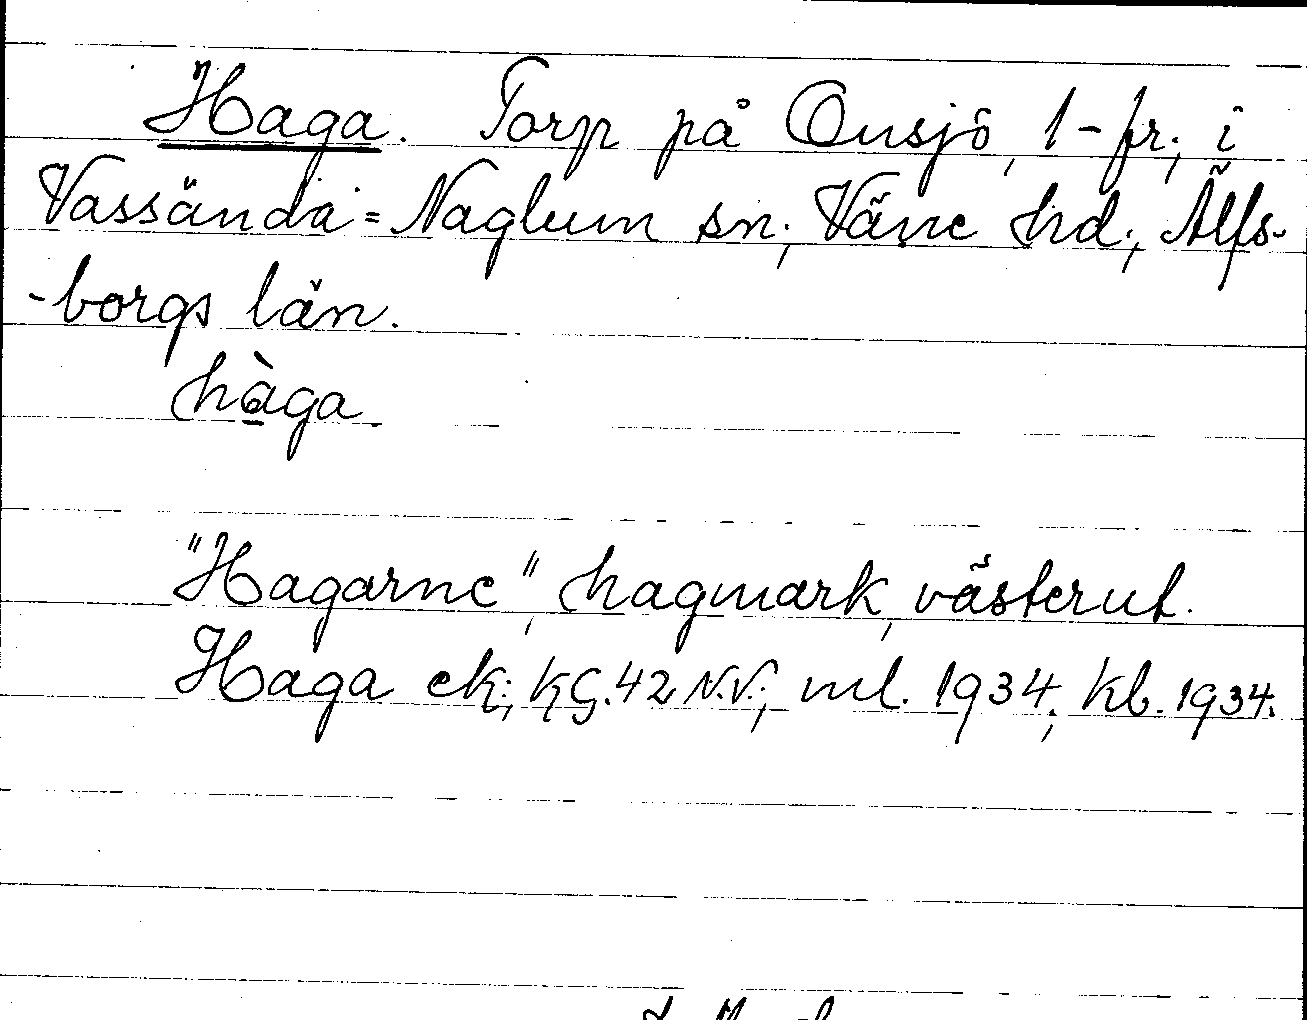 Haga. Torp på Onsjö, 1-fr., i
Vassända=Naglum sn., Väne hd., Älfs-
-borgs län.
hàga
"Hagarne", hagmark, västerut.
Haga ek., KG. 42 N.V., ml. 1934., Kb. 1934.